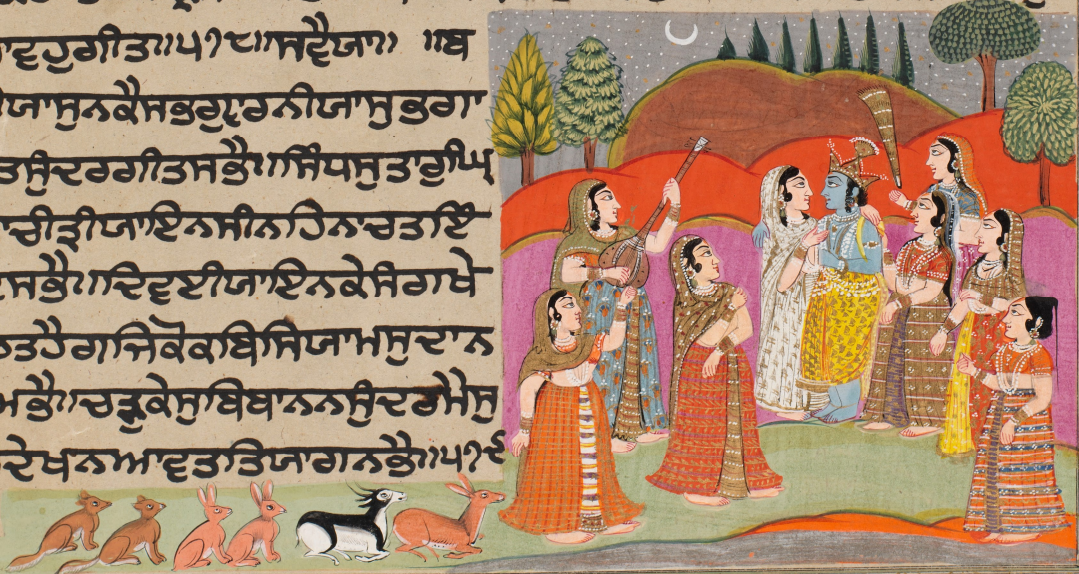 ਵਹੁਗੀਤ॥੫੧੮॥ਸਵੈਯਾ॥ ॥ਬ
ੀਯਾਸੁਨਕੈਸਭਗੁਵਾਰਨੀਯਾਸੁਭਗਾ
ਤਸੁੰਦਰਗੀਤਸਭੈ॥ਸਿੰਧਸੁਤਾਰੁਘ੍ਰਿ
ਾਚੀਤ੍ਰੀਯਾਇਨਸੀਨਹਿਨਾਚਤਇੰ
ਸਭੈ॥ਦਿਵਈਯਾਇਨਕੇਸਿਗਖੇ
ਤਹੈਗਜਿਕੋਕਬਿਸਿਯਾਮਸੁਦਾਨ
ਮਭੈ॥ਚੜਕੇਸੁਬਿਬਾਨਨਸੁੰਦਰਮੈਸੁ
ਦੇਖਨਆਵਤਤਿਯਾਗਨਭੈ॥੫੧੯